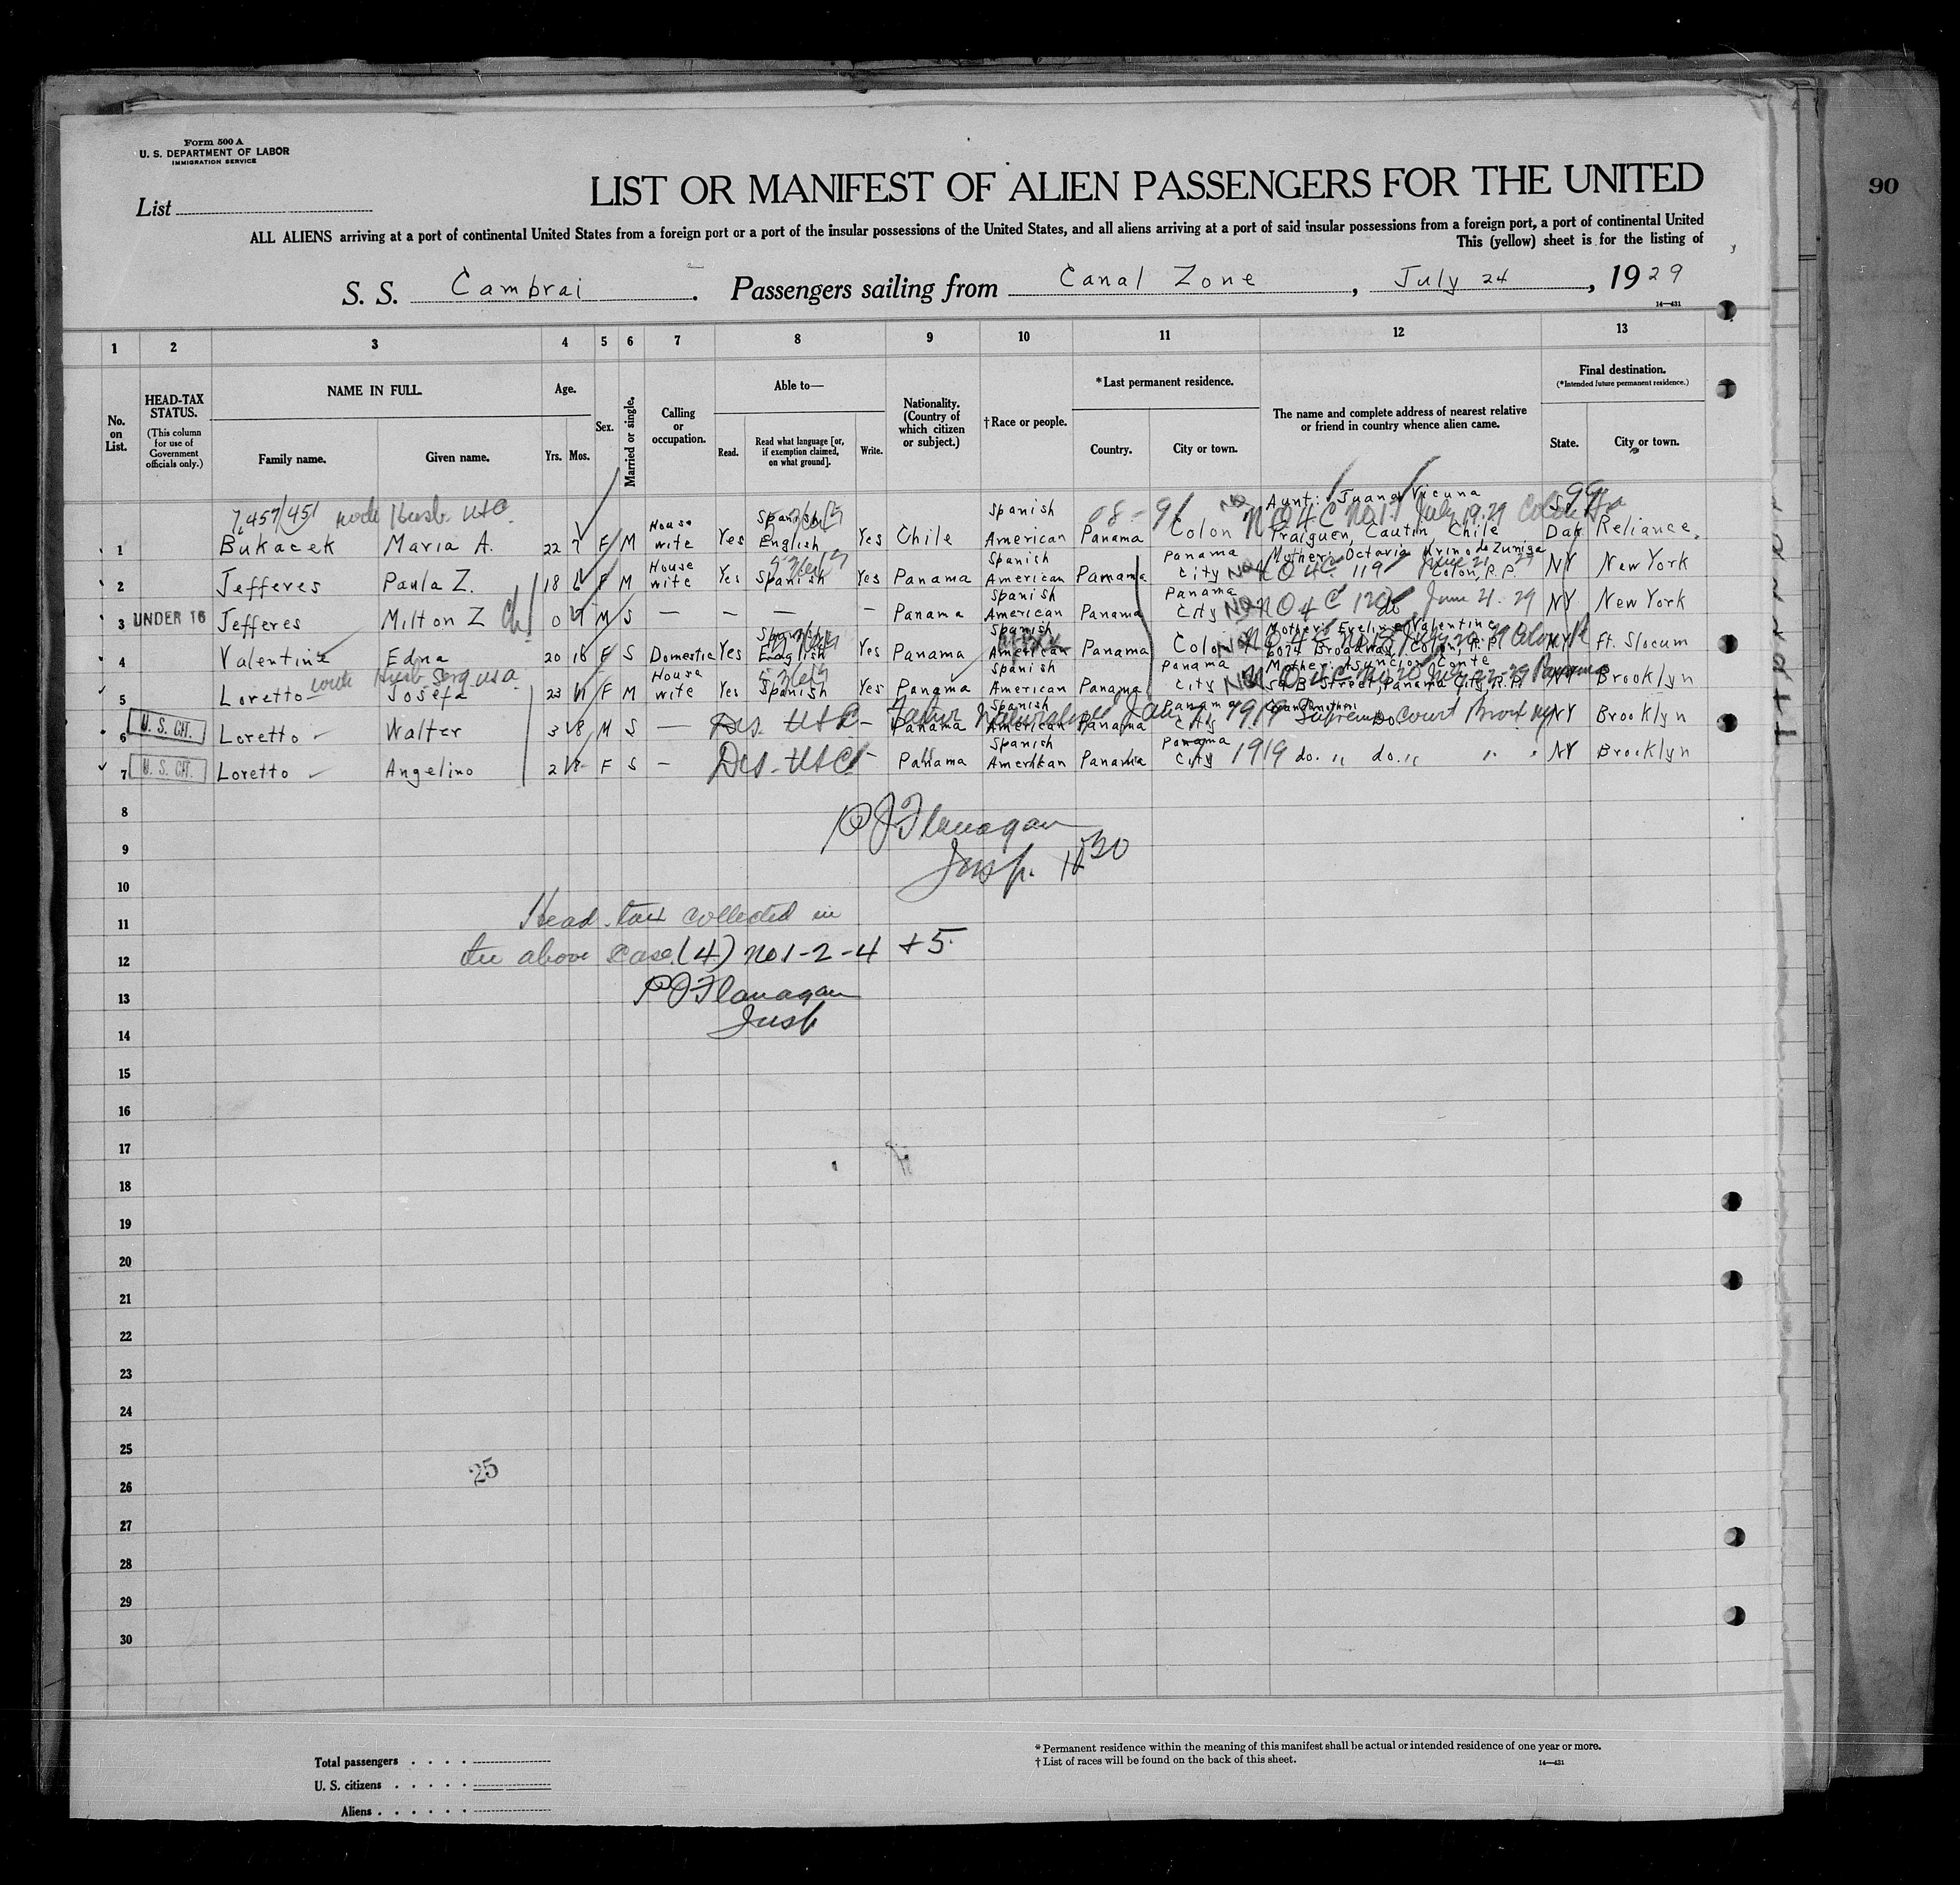 Form 500 A
U. S. DEPARTMENT OF LABOR
IMMIGRATION SERVICE
90
LIST OR MANIFEST OF ALIEN PASSENGERS FOR THE UNITED
List
ALL ALIENS arriving at a port of continental United States from a foreign port or a port of the insular possessions of the United States, and all aliens arriving at a port of said insular possessions from a foreign port, a port of continental United
This (yellow) sheet is for the listing of
S. S. Cambrai. Passengers sailing from Canal Zone, July 24, 1929
14—431
1 2 3 4 5 6 7 8 9 10 11 12 13
No. on List.
HEAD-TAX STATUS.
(This column for use of Government officials only.)
NAME IN FULL.
Family name. Given name.
Age.
Yrs. Mos.
Sex.
Married or single.
Calling or occupation.
Able to—
Read. Read what language [or, if exemption claimed, on what ground]. Write.
Nationality. (Country of which citizen or subject.)
†Race or people.
*Last permanent residence.
Country. City or town.
The name and complete address of nearest relative or friend in country whence alien came.
Final destination.
(*Intended future permanent residence.)
State. City or town.
7,457/451
1 Bukacek Maria A. 22 7 F M House wife Yes Spanish English Yes Chile Spanish American Panama Colon Aunt: Juana Vicuna Traiguen, Cautin, Chile S Dak Reliance.
2 Jefferes Paula Z. 18 6 F M House wife Yes Spanish Yes Panama Spanish American Panama Panama City Mother: Octavia de Zuniga Colon, R.P. NY New York
3 UNDER 16 Jefferes Milton Z 0 M S — — — — Panama Spanish American Panama Panama City NQ 4C 120 do June 21. 29 NY New York
4 Valentine Edna 20 F S Domestic Yes Spanish English Yes Panama Spanish American Panama Colon Mother: Evelina Valentine Broadway, Colon, R.P. NY Ft. Slocum
5 Loretto Josefa 23 F M House wife Yes Spanish Yes Panama Spanish American Panama Panama City Mother: Asuncion Conte B Street, Panama City, R.P. NY Brooklyn
6 U. S. CIT. Loretto Walter 3 8 M S — — Panama Spanish American Panama Panama City 1919 Supreme Court NY Brooklyn
7 U. S. CIT. Loretto Angelino 2 F S — Panama Spanish American Panama Panama City 1919 do. ,, do. ,, NY Brooklyn
8
P J Flanagan
9
Insp.
10
11
Head tax collected in
12
the above case (4) no 1-2-4 + 5
13
P J Flanagan
Insp
14
15
16
17
18
19
20
21
22
23
24
25
25
26
27
28
29
30
Total passengers . . . .
U. S. citizens . . . . .
Aliens . . . . . .
* Permanent residence within the meaning of this manifest shall be actual or intended residence of one year or more.
† List of races will be found on the back of this sheet.
14—431